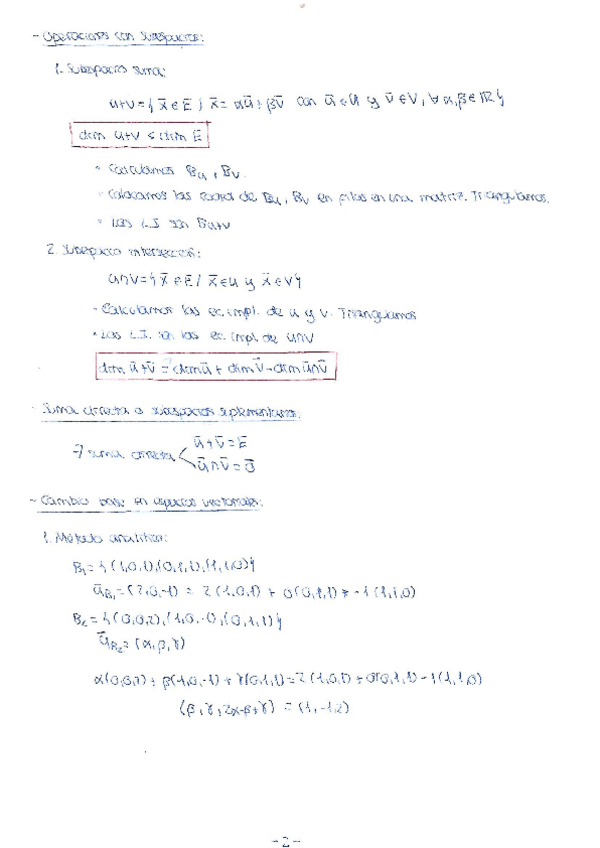 - Operaciones con subespacios:
1. Subespacio suma:
U+V = { x̄ ∈ Ē / x̄ = αū + βv̄ con ū ∈ U y v̄ ∈ V, ∀ α, β ∈ ℝ }
dim U+V ≤ dim E
• Calculamos B_U, B_V.
- Colocamos las coord de B_U, B_V en filas en una matriz. Triangulamos.
• Los L.I son B_U+V
2. Subespacio intersección:
U∩V = { x̄ ∈ Ē / x̄ ∈ U y x̄ ∈ V }
- Calculamos las ec. impl. de U y V. Triangulamos
• Las L.I. son las ec. impl de U∩V
dim ū+v̄ = dim ū + dim v̄ - dim ū∩v̄
- Suma directa o subespacios suplementarios:
→ suma directa
ū+v̄ = Ē
ū∩v̄ = 0̄
- Cambio base en espacios vectoriales:
1. Método analítico:
B₁ = { (1,0,1), (0,1,1), (1,1,0) }
ū_B₁ = (2,0,-1) = 2(1,0,1) + 0(0,1,1) + -1(1,1,0)
B₂ = { (0,0,2), (1,0,-1), (0,1,1) }
ū_B₂ = (α, β, γ)
α(0,0,2) + β(1,0,-1) + γ(0,1,1) = 2(1,0,1) + 0(0,1,1) - 1(1,1,0)
(β, γ, 2α-β+γ) = (1,-1,2)
- 2 -